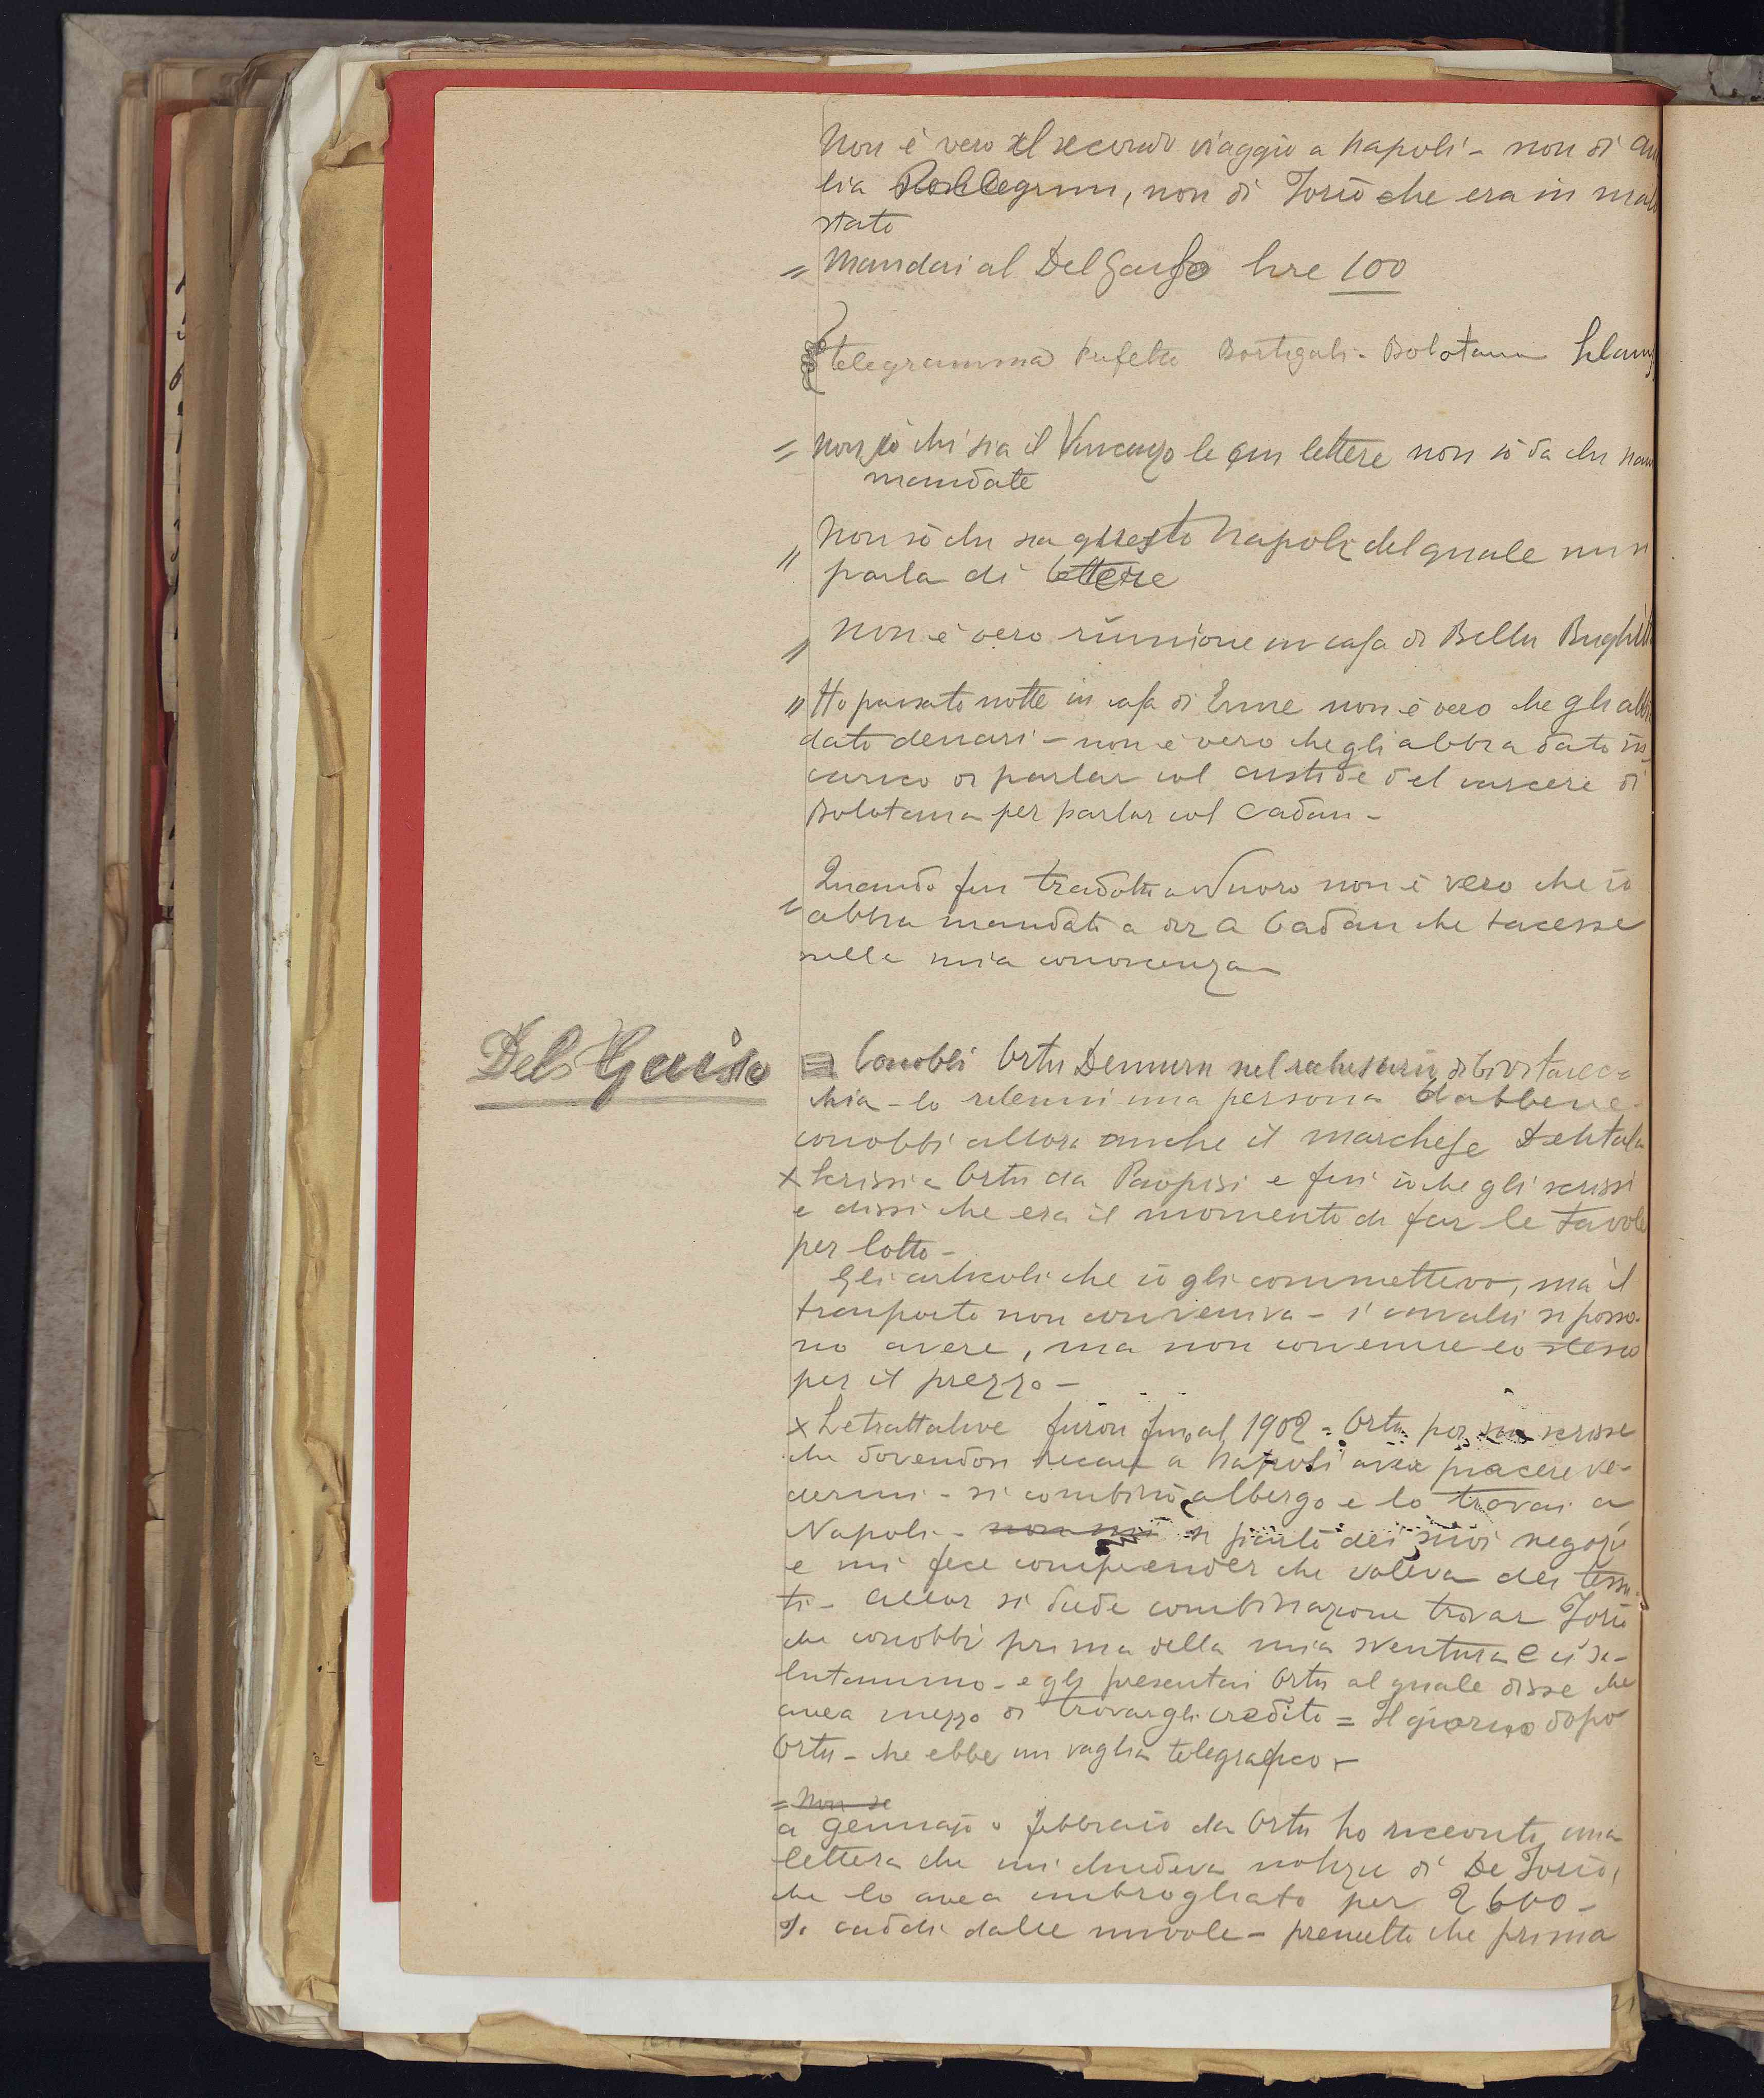 Non è vero il secondo viaggio a Napoli - non di
lia Pellegrini, non di Jorio che era in malo
stato
= Mandai al Del Gaiso lire 100
telegramma Prefetto Bortigali - Bolotana
= non so chi sia il Vincenzo le cui lettere non so da chi
mandate
" Non so chi sia questo Napoli del quale
parla di lettere
" Non è vero riunione in casa di Bellu
" Ho passato notte in casa di non è vero che gli abbi
dato denari - non è vero che gli abbia dato in
carico di parlar col custode del carcere di
Bolotana per parlar col Cadau -
" Quando fui tradotto a Nuoro non è vero che io
abbia mandato a dir a Cadau che tacesse
nella mia conoscenza
Del Gaiso = Conobbi Ortu Demuru nel reclusorio di Civitavec=
chia - lo ritenni una persona dabbene -
conobbi allora anche il marchese
x Scrissi a Ortu da Paupisi e fui io che gli scrissi
e dissi che era il momento di far le tavole
per lotto -
Gli articoli che io gli commettevo, ma il
trasporto non conveniva - i cavalli si posso-
no avere, ma non convenire lo stesso
per il prezzo -
x Le trattative furon fino al 1902 = Ortu poi scrisse
che dovendosi recare a Napoli avea piacere ve-
dermi - si combinò albergo e lo trovai a
Napoli - non mi si parlò dei suoi negozi
e mi fece comprender che voleva dei tessu-
ti - Allor si diede combinazione trovar Jorio
che conobbi prima della mia sventura e ci sa-
lutammo - e gli presentai Ortu al quale disse che
avea mezzo di trovargli credito = Il giorno dopo
Ortu - che ebbe un vaglia telegrafico -
= Non so
a gennajo o febbraio da Ortu ho ricevuto una
lettera che mi chiedeva notizie di De Jorio,
che lo avea imbrogliato per 2600 -
Io caddi dalle nuvole - premetto che prima